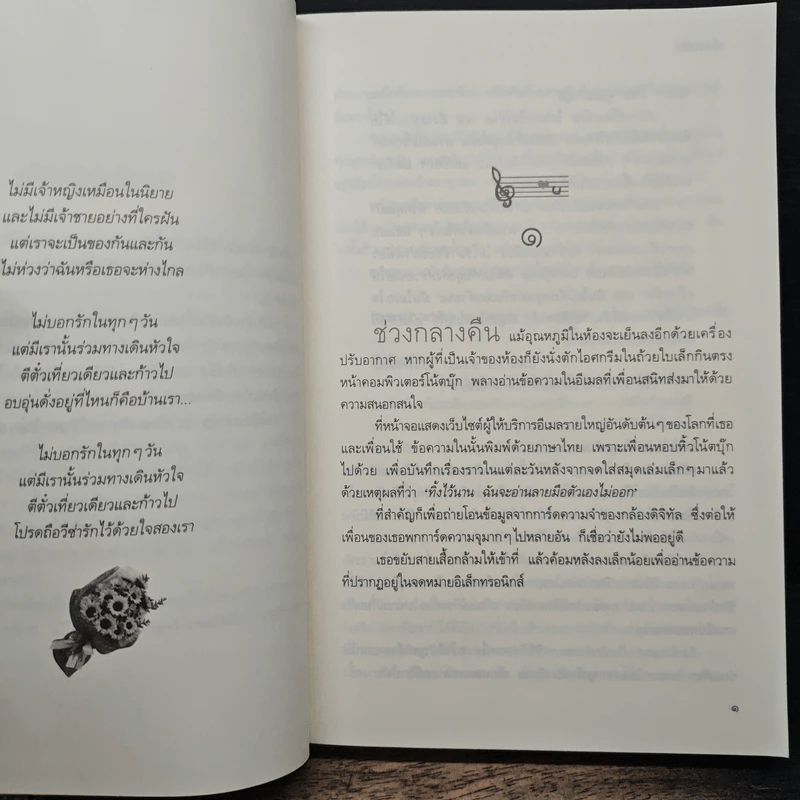 ไม่มีเจ้าหญิงเหมือนในนิยาย
และไม่มีเจ้าชายอย่างที่ใครฝัน
แต่เราจะเป็นของกันและกัน
ไม่ห่วงว่าฉันหรือเธอจะห่างไกล
ไม่บอกรักในทุกๆวัน
แต่มีเรานั้นร่วมทางเดินหัวใจ
ตีตั๋วเที่ยวเดียวและก้าวไป
อบอุ่นดั่งอยู่ที่ไหนก็คือบ้านเรา...
ไม่บอกรักในทุกๆวัน
แต่มีเรานั้นร่วมทางเดินหัวใจ
ตีตั๋วเที่ยวเดียวและก้าวไป
โปรดถือวีซ่ารักไว้ด้วยใจสองเรา
๑
ช่วงกลางคืน แม้อุณหภูมิในห้องจะเย็นลงอีกด้วยเครื่อง
ปรับอากาศ หากผู้ที่เป็นเจ้าของห้องก็ยังนั่งตักไอศกรีมในถ้วยใบเล็กกินตรง
หน้าคอมพิวเตอร์โน้ตบุ๊ก พลางอ่านข้อความในอีเมลที่เพื่อนสนิทส่งมาให้ด้วย
ความสนอกสนใจ
ที่หน้าจอแสดงเว็บไซต์ผู้ให้บริการอีเมลรายใหญ่อันดับต้นๆของโลกที่เธอ
และเพื่อนใช้ ข้อความในนั้นพิมพ์ด้วยภาษาไทย เพราะเพื่อนหอบหิ้วโน้ตบุ๊ก
ไปด้วย เพื่อบันทึกเรื่องราวในแต่ละวันหลังจากจดใส่สมุดเล่มเล็กๆมาแล้ว
ด้วยเหตุผลที่ว่า ‘ทิ้งไว้นาน ฉันจะอ่านลายมือตัวเองไม่ออก’
ที่สำคัญก็เพื่อถ่ายโอนข้อมูลจากการ์ดความจำของกล้องดิจิทัล ซึ่งต่อให้
เพื่อนของเธอพกการ์ดความจุมากๆไปหลายอัน ก็เชื่อว่ายังไม่พออยู่ดี
เธอขยับสายเสื้อกล้ามให้เข้าที่ แล้วค้อมหลังลงเล็กน้อยเพื่ออ่านข้อความ
ที่ปรากฏอยู่ในจดหมายอิเล็กทรอนิกส์
๑